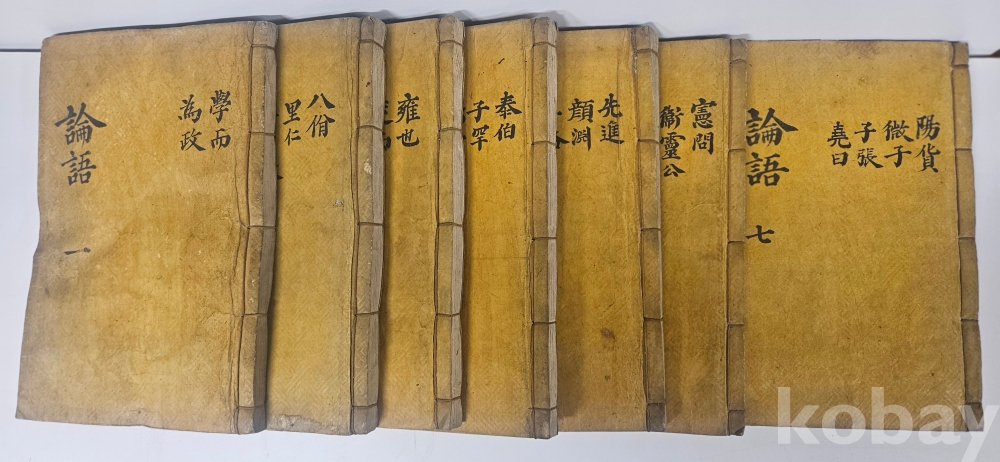 論語 一
學而
為政
八佾
里仁
雍也
泰伯
子罕
先進
顔淵
憲問
衛靈公
論語 七
陽貨
微子
子張
堯曰
kobay